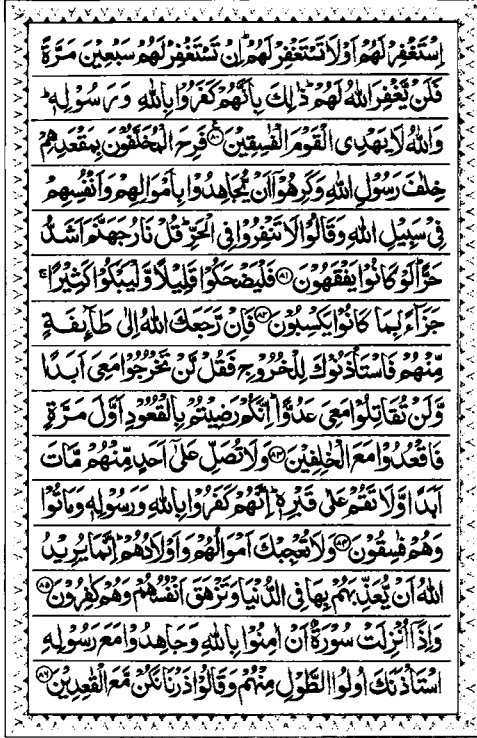 اِسْتَغْفِرْ لَهُمْ اَوْ لَا تَسْتَغْفِرْ لَهُمْ ؕ اِنْ تَسْتَغْفِرْ لَهُمْ سَبْعِيْنَ مَرَّةً
فَلَنْ يَّغْفِرَ اللّٰهُ لَهُمْ ؕ ذٰلِكَ بِاَنَّهُمْ كَفَرُوْا بِاللّٰهِ وَرَسُوْلِهٖ ؕ
وَاللّٰهُ لَا يَهْدِى الْقَوْمَ الْفٰسِقِيْنَ ﴿۸۰﴾ فَرِحَ الْمُخَلَّفُوْنَ بِمَقْعَدِهِمْ
خِلٰفَ رَسُوْلِ اللّٰهِ وَكَرِهُوْۤا اَنْ يُّجَاهِدُوْا بِاَمْوَالِهِمْ وَاَنْفُسِهِمْ
فِيْ سَبِيْلِ اللّٰهِ وَقَالُوْا لَا تَنْفِرُوْا فِى الْحَرِّ ؕ قُلْ نَارُ جَهَنَّمَ اَشَدُّ
حَرًّا ؕ لَوْ كَانُوْا يَفْقَهُوْنَ ﴿۸۱﴾ فَلْيَضْحَكُوْا قَلِيْلًا وَّلْيَبْكُوْا كَثِيْرًا ۚ
جَزَآءًۢ بِمَا كَانُوْا يَكْسِبُوْنَ ﴿۸۲﴾ فَاِنْ رَّجَعَكَ اللّٰهُ اِلٰى طَآئِفَةٍ
مِّنْهُمْ فَاسْتَاْذَنُوْكَ لِلْخُرُوْجِ فَقُلْ لَّنْ تَخْرُجُوْا مَعِىَ اَبَدًا
وَّلَنْ تُقَاتِلُوْا مَعِىَ عَدُوًّا ؕ اِنَّكُمْ رَضِيْتُمْ بِالْقُعُوْدِ اَوَّلَ مَرَّةٍ
فَاقْعُدُوْا مَعَ الْخٰلِفِيْنَ ﴿۸۳﴾ وَلَا تُصَلِّ عَلٰۤى اَحَدٍ مِّنْهُمْ مَّاتَ
اَبَدًا وَّلَا تَقُمْ عَلٰى قَبْرِهٖ ؕ اِنَّهُمْ كَفَرُوْا بِاللّٰهِ وَرَسُوْلِهٖ وَمَاتُوْا
وَهُمْ فٰسِقُوْنَ ﴿۸۴﴾ وَلَا تُعْجِبْكَ اَمْوَالُهُمْ وَاَوْلَادُهُمْ ؕ اِنَّمَا يُرِيْدُ
اللّٰهُ اَنْ يُّعَذِّبَهُمْ بِهَا فِى الدُّنْيَا وَتَزْهَقَ اَنْفُسُهُمْ وَهُمْ كٰفِرُوْنَ ﴿۸۵﴾
وَاِذَاۤ اُنْزِلَتْ سُوْرَةٌ اَنْ اٰمِنُوْا بِاللّٰهِ وَجَاهِدُوْا مَعَ رَسُوْلِهِ
اسْتَاْذَنَكَ اُولُوا الطَّوْلِ مِنْهُمْ وَقَالُوْا ذَرْنَا نَكُنْ مَّعَ الْقٰعِدِيْنَ ﴿۸۶﴾